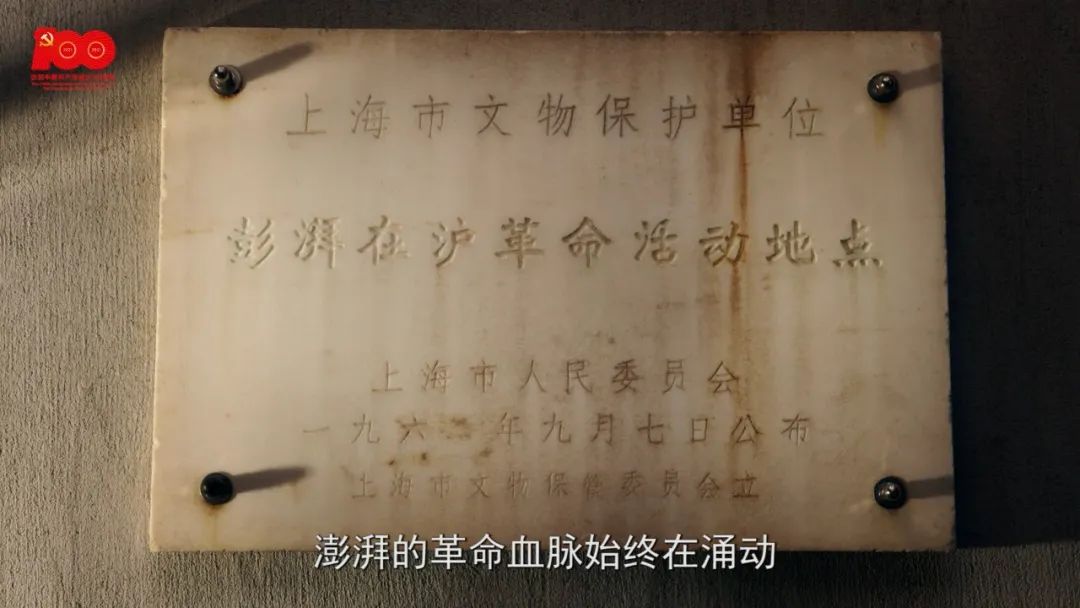 100
上海市文物保护单位
彭湃在沪革命活动地点
上海市人民委员会
一九六二年九月七日公布
上海市文物保管委员会立
澎湃的革命血脉始终在涌动